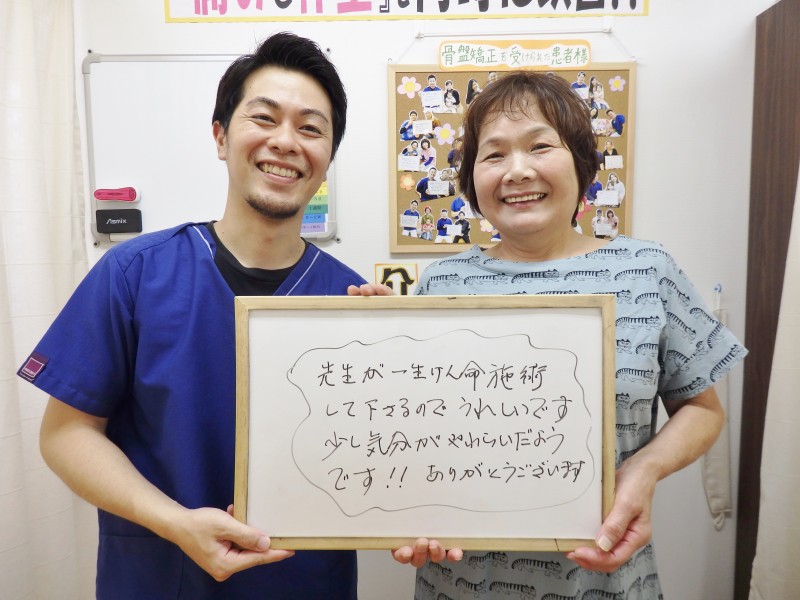 骨盤矯正を受けられた患者様
Asmix
先生が一生けん命施術
して下さるので うれしいです
少し気分がやわらいだよう
です!! ありがとうございます